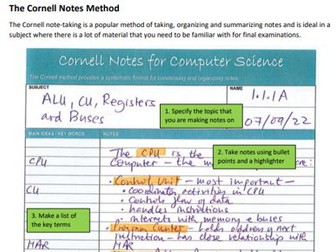 The Cornell Notes Method
The Cornell note-taking is a popular method of taking, organizing and summarizing notes and is ideal in a
subject where there is a lot of material that you need to be familiar with for final examinations.
Cornell Notes for Computer Science
The Cornell method provides a systematic format for condensing and organizing notes.
SUBJECT
NAME
ALU, CU, Registers
and Buses
1.1.1A
1: Specify the topic that
you are making notes on
07/09/22
MAIN IDEAS / KEY WORDS
NOTES
2. Take notes using bullet
points and a highlighter
The CPU is the
CPU
Computer - the
Control Unit - most important -
CU
Coordinates activities in CPU
controls flow of data
handles instructions
interacts with memory & buses
3. Make a list of
the key terms
Program Counter - holds address of next
instruction - has close relationships with
MAR
MAR